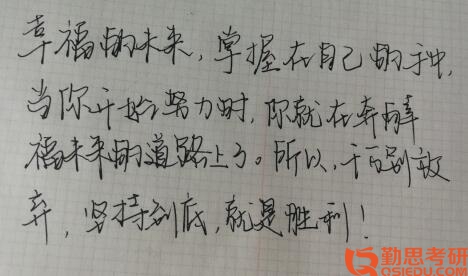 幸福的未来,掌握在自己的手中,
当你开始努力时,你就在奔向幸
福未来的道路上了。所以,千万别放
弃,坚持到底,就是胜利!
勤思考研
QSIEDU.COM